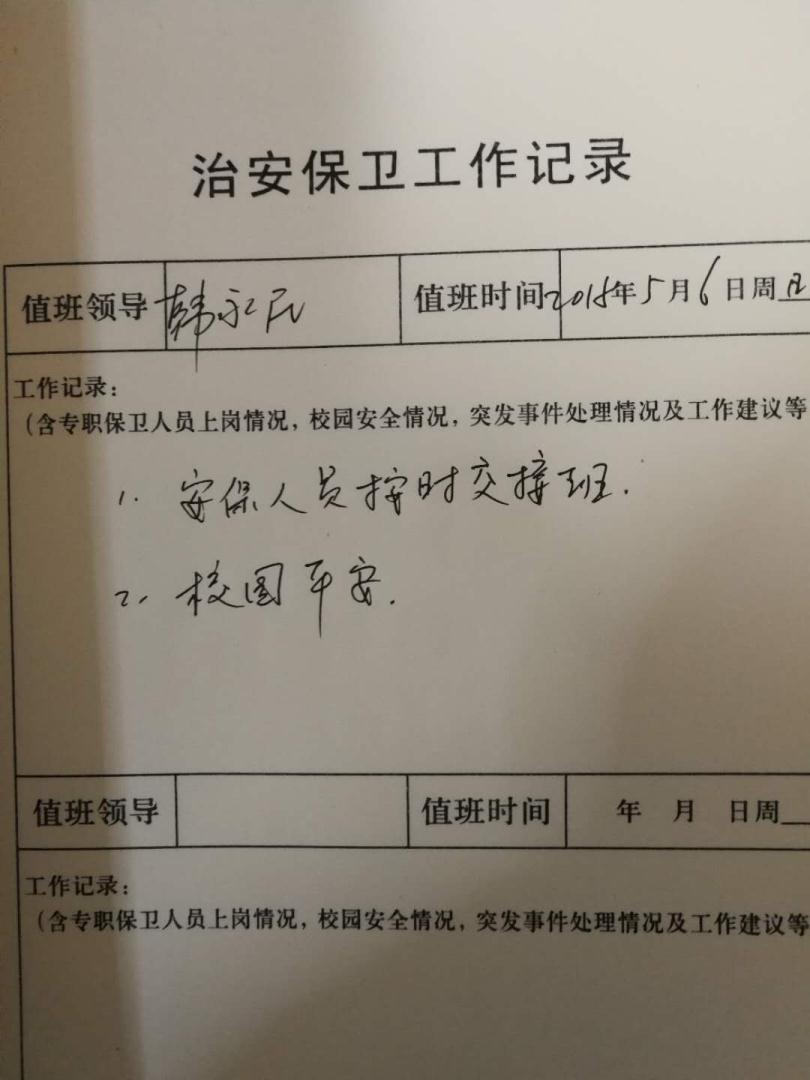 治安保卫工作记录
值班领导 韩永民 值班时间 2018年5月6日周日
工作记录：
（含专职保卫人员上岗情况，校园安全情况，突发事件处理情况及工作建议等
1. 安保人员按时交接班.
2. 校园平安.
值班领导 值班时间 年 月 日周
工作记录：
（含专职保卫人员上岗情况，校园安全情况，突发事件处理情况及工作建议等